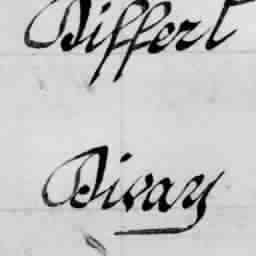 Differt
Divay